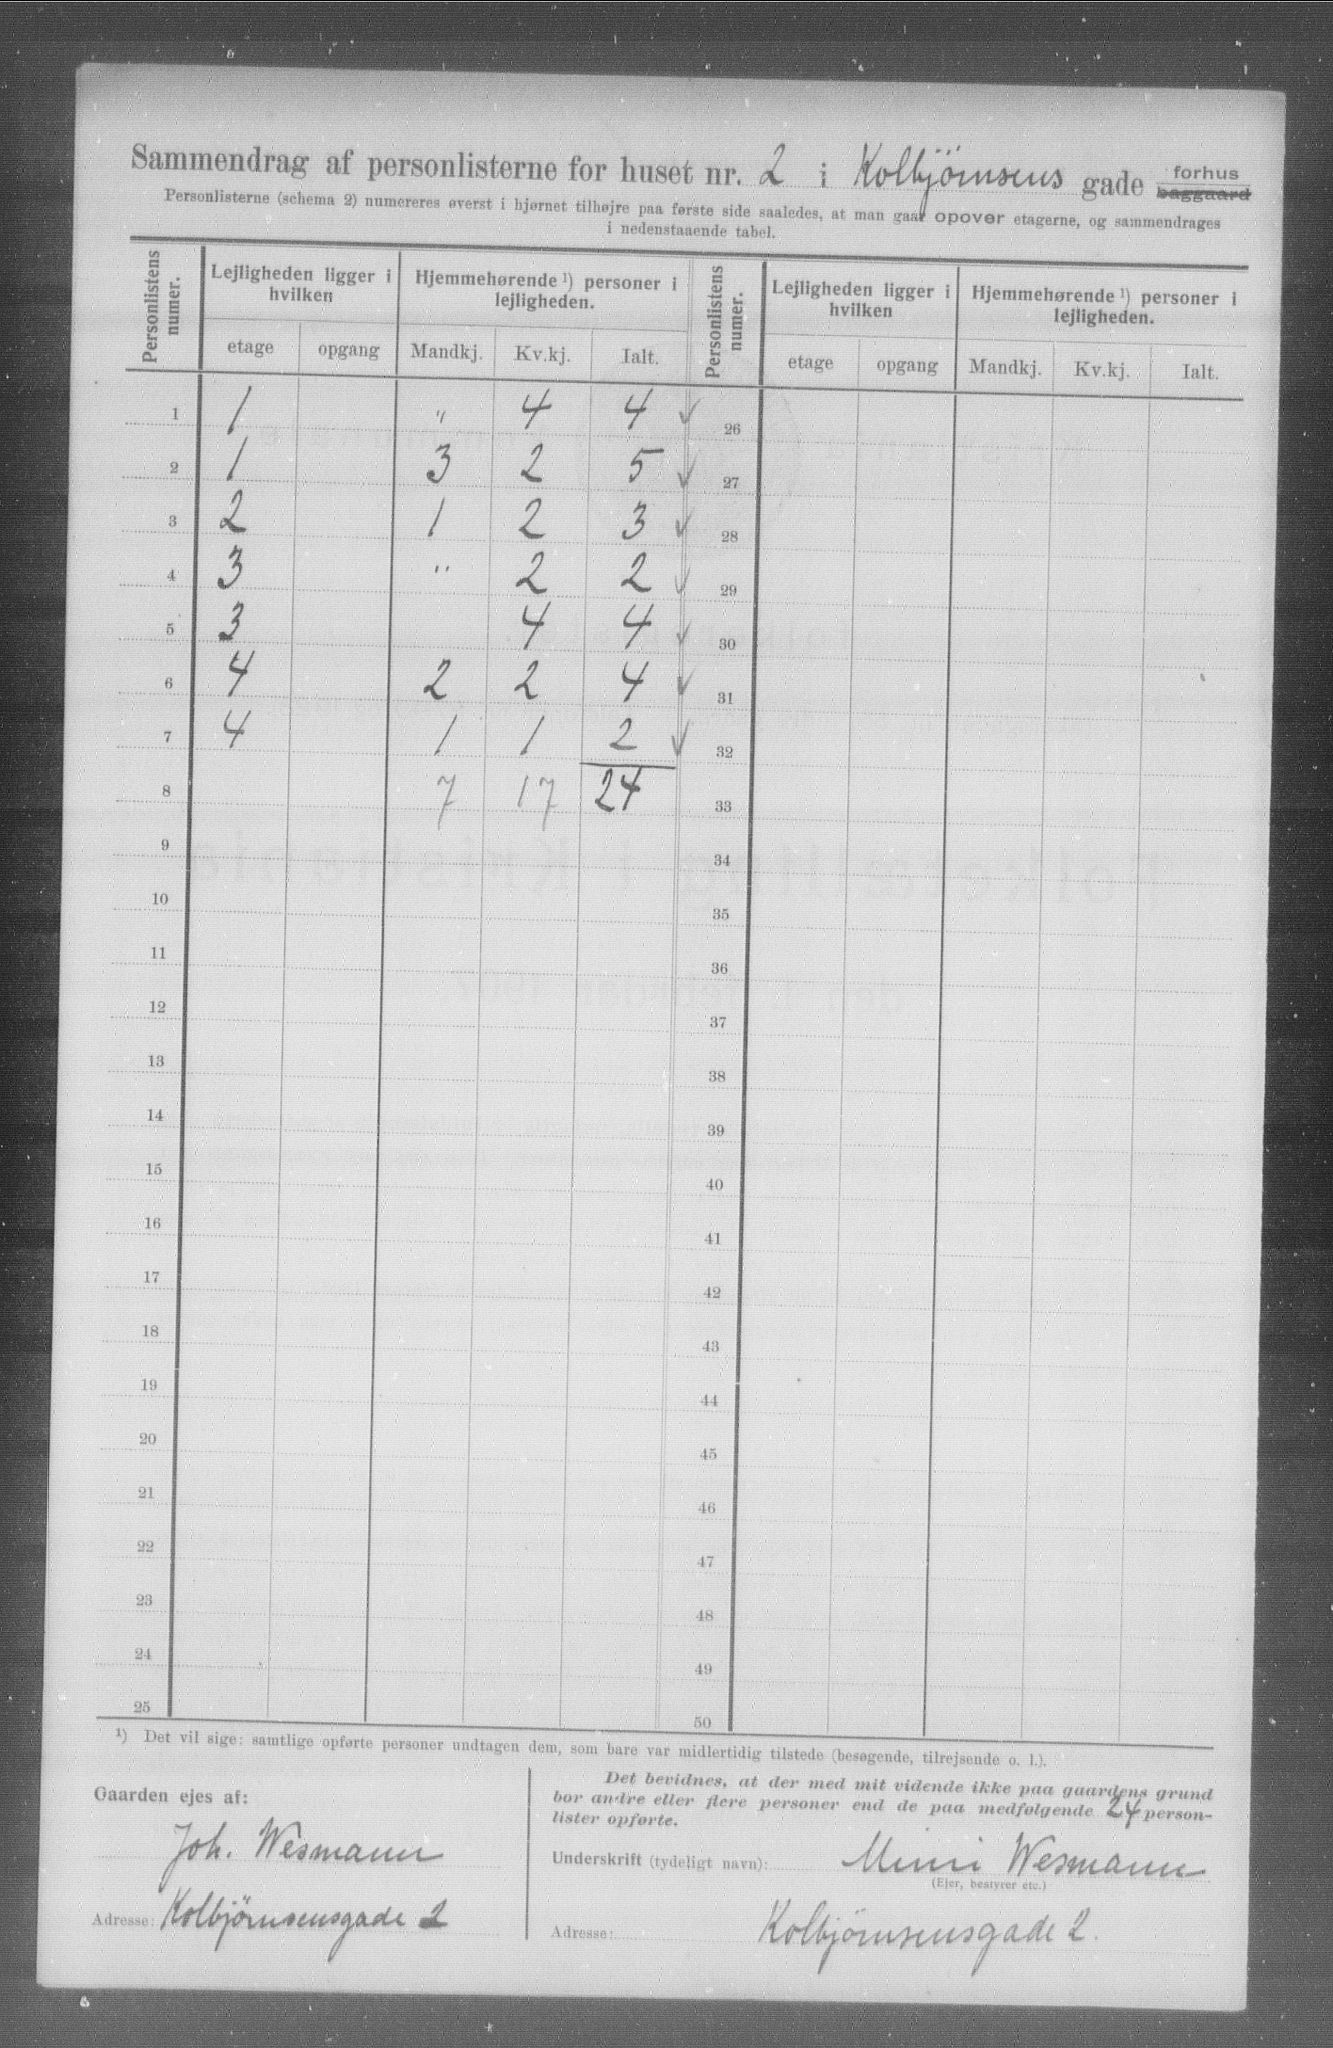 Sammendrag af personlisterne for huset nr. 2 i Kolbjørnsens gade forhus baggaard
Personlisterne (schema 2) numereres øverst i hjørnet tilhøjre paa første side saaledes, at man gaar opover etagerne, og sammendrages
i nedenstaaende tabel.
Personlistens numer. Lejligheden ligger i hvilken Hjemmehørende ¹) personer i lejligheden. Personlistens numer. Lejligheden ligger i hvilken Hjemmehørende ¹) personer i lejligheden.
etage opgang Mandkj. Kv.kj. Ialt. etage opgang Mandkj. Kv.kj. Ialt.
1 1 " 4 4 ✓ 26
2 1 3 2 5 ✓ 27
3 2 1 2 3 ✓ 28
4 3 " 2 2 ✓ 29
5 3 4 4 ✓ 30
6 4 2 2 4 ✓ 31
7 4 1 1 2 ✓ 32
8 7 17 24 33
9 34
10 35
11 36
12 37
13 38
14 39
15 40
16 41
17 42
18 43
19 44
20 45
21 46
22 47
23 48
24 49
25 50
¹) Det vil sige: samtlige opførte personer undtagen dem, som bare var midlertidig tilstede (besøgende, tilrejsende o. l.).
Gaarden ejes af:
Joh. Wesmann
Adresse: Kolbjørnsensgade 2
Det bevidnes, at der med mit vidende ikke paa gaardens grund
bor andre eller flere personer end de paa medfølgende 24 person-
lister opførte.
Underskrift (tydeligt navn): Mimi Wesmann
(Ejer, bestyrer etc.)
Adresse: Kolbjørnsensgade 2.